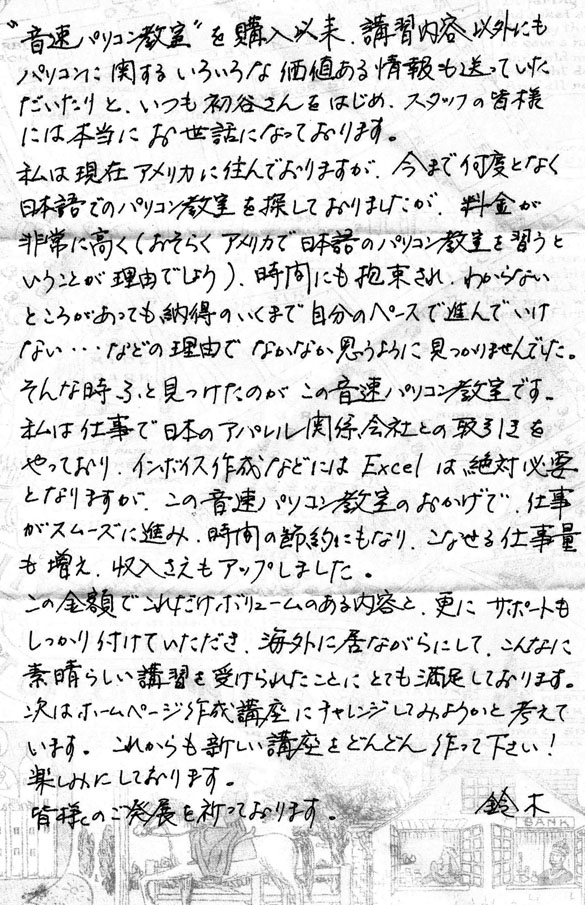 "音速パソコン教室"を購入以来、講習内容以外にも
パソコンに関するいろいろな価値ある情報も送っていた
だいたりと、いつも初谷さんをはじめ、スタッフの皆様
には本当にお世話になっております。
私は現在アメリカに住んでおりますが、今まで何度となく
日本語でのパソコン教室を探しておりましたが、料金が
非常に高く(おそらくアメリカで日本語のパソコン教室を習うと
いうことが理由でしょう)、時間にも拘束され、わからない
ところがあっても納得のいくまで自分のペースで進んでいけ
ない・・・などの理由でなかなか思うように見つかりませんでした。
そんな時ふと見つけたのがこの音速パソコン教室です。
私は仕事で日本のアパレル関係会社との取引きを
やっており、インボイス作成などにはExcelは絶対必要
となりますが、この音速パソコン教室のおかげで、仕事
がスムーズに進み、時間の節約にもなり、こなせる仕事量
も増え、収入さえもアップしました。
この金額でこれだけボリュームのある内容と、更にサポートも
しっかり付けていただき、海外に居ながらにして、こんなに
素晴らしい講習を受けられたことにとても満足しております。
次はホームページ作成講座にチャレンジしてみようかと考えて
います。これからも新しい講座をどんどん作って下さい!
楽しみにしております。
皆様のご発展を祈っております。
鈴木
BANK